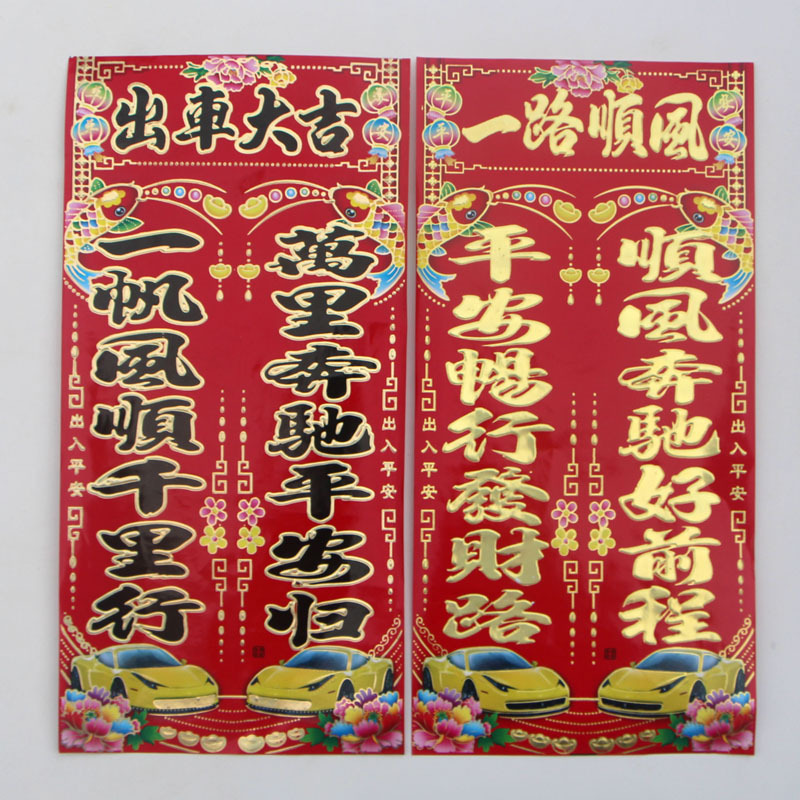 出車大吉
出入平安
一帆風順千里行
萬里奔馳平安归
出入平安
一路順風
出入平安
平安暢行發財路
順風奔馳好前程
出入平安